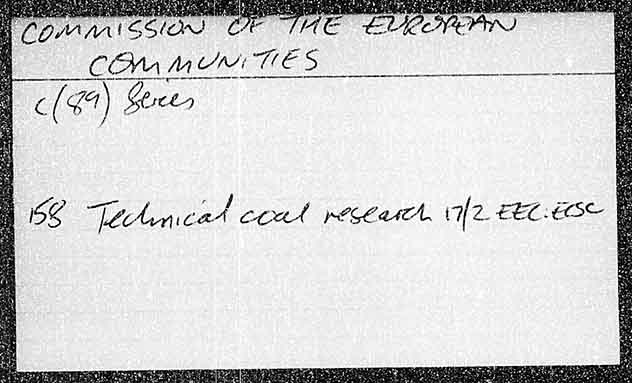 COMMISSION OF THE EUROPEAN
COMMUNITIES
C(89) Series
158 Technical coal research 17/2 EEC:ECSC